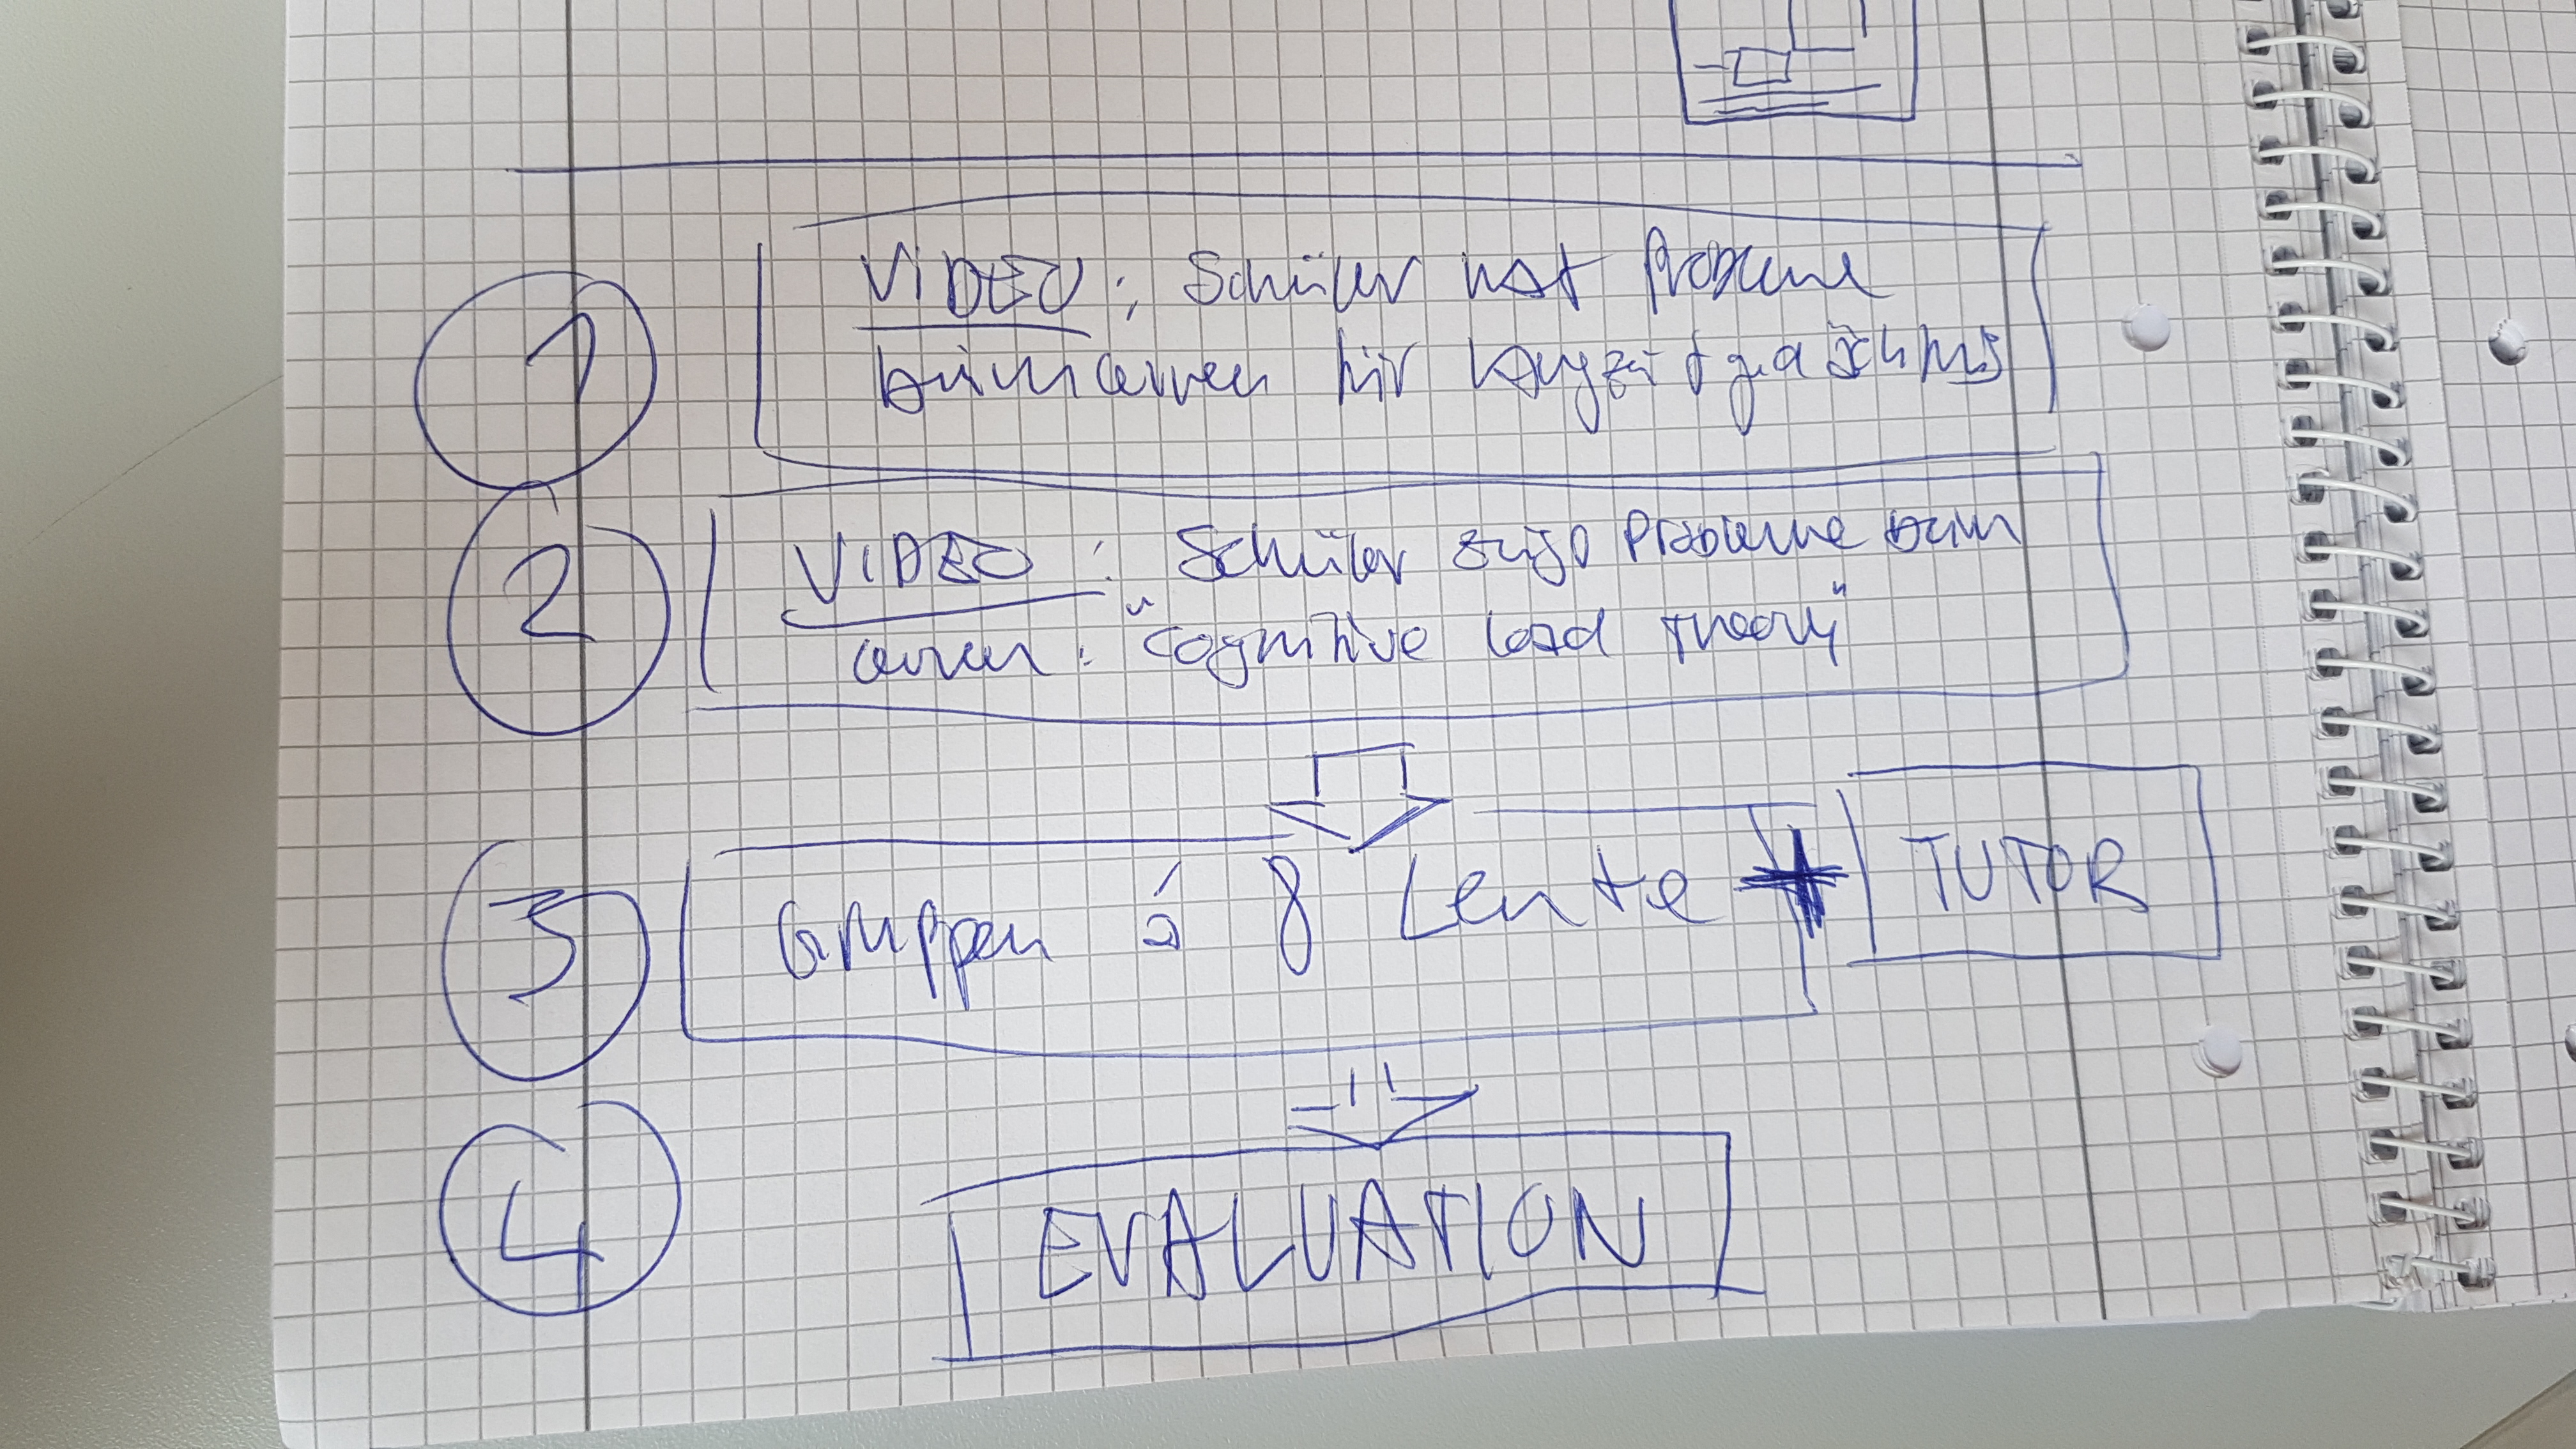 1
VIDEO: Schüler hat Probleme
beim Lernen für Langzeitgedächtnis
2
VIDEO: Schüler zeigt Probleme beim
Lernen: "Cognitive Load Theory"
3
Gruppen á 8 Leute
TUTOR
4
EVALUATION